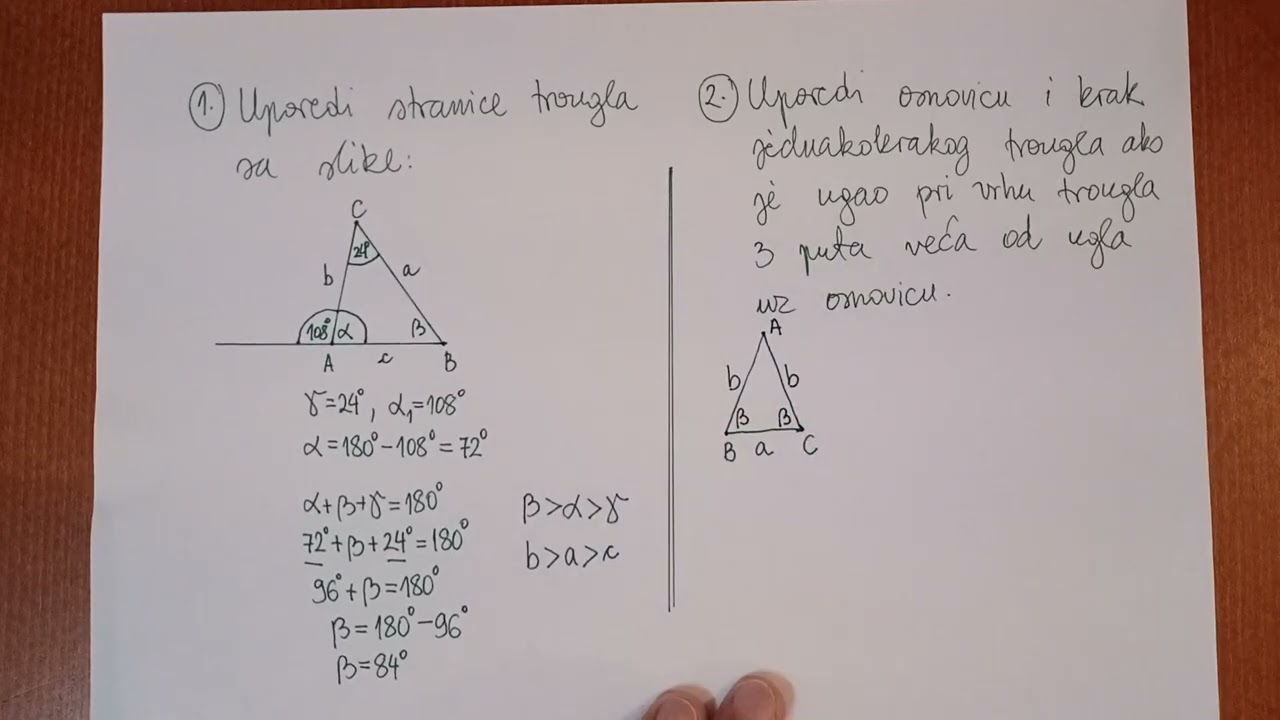 1. Uporedi stranice trougla
sa slike:
C
24°
b
a
108°
α
β
A
c
B
γ=24°, α₁=108°
α=180°-108°=72°
α+β+γ=180°
72°+β+24°=180°
96°+β=180°
β=180°-96°
β=84°
β>α>γ
b>a>c
2. Uporedi osnovicu i krak
jednakokrakog trougla ako
je ugao pri vrhu trougla
3 puta veća od ugla
uz osnovicu.
A
b
b
β
β
B
a
C